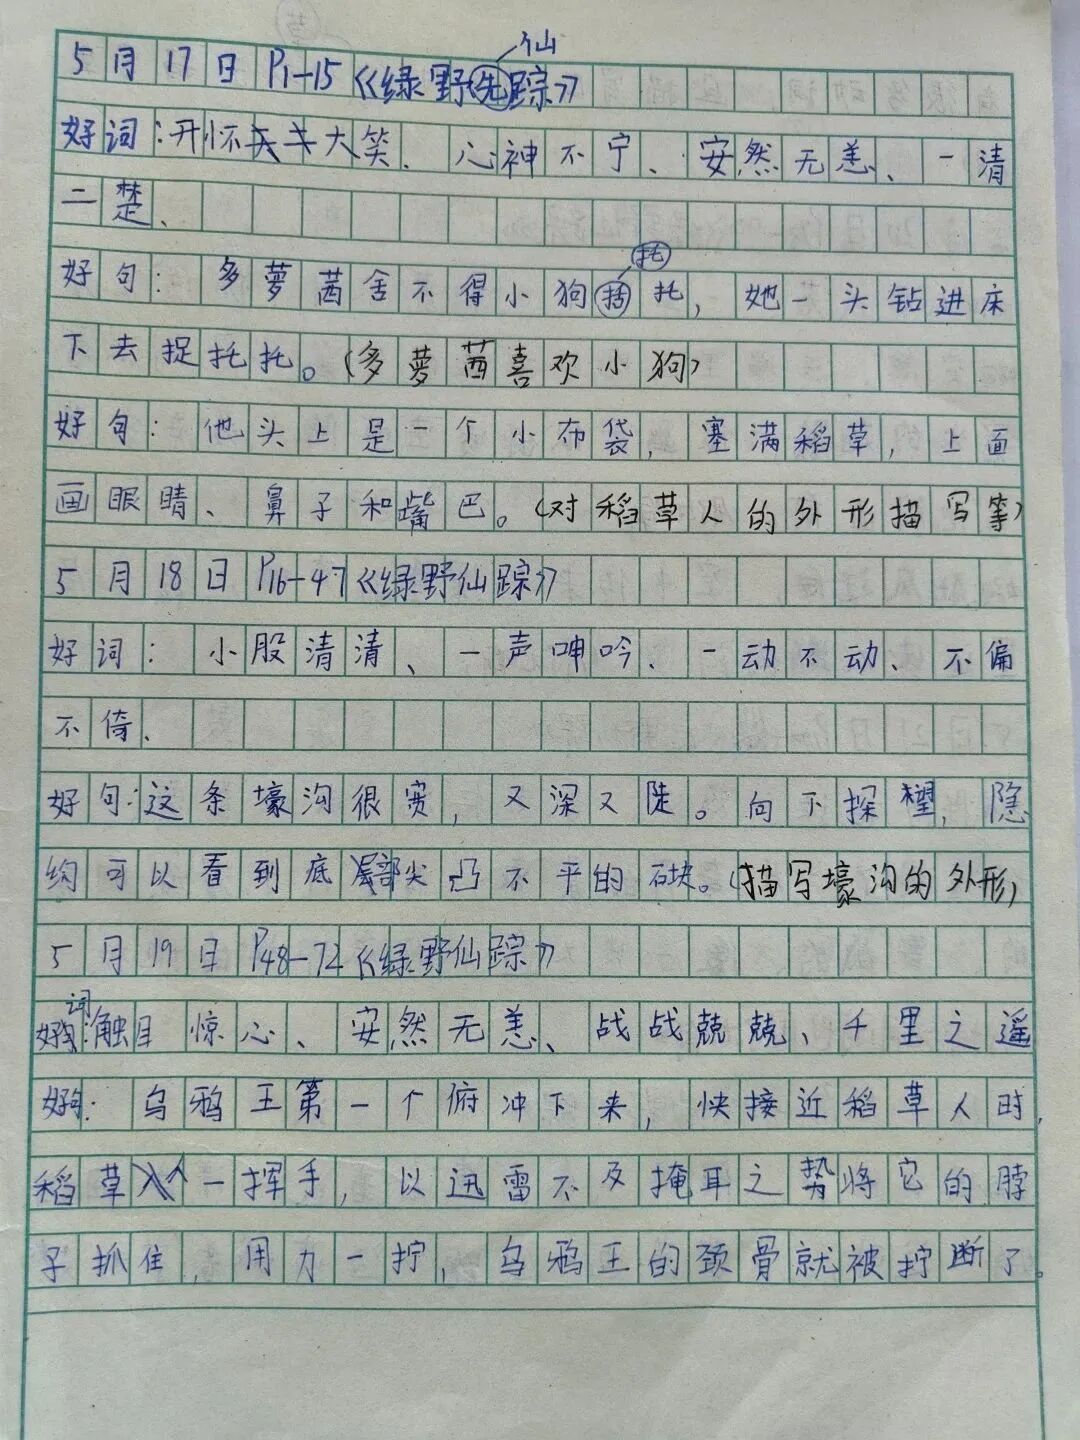 仙
5月17日 P1-15《绿野先踪》
好词:开怀大笑、心神不宁、安然无恙、一清
二楚、
托
好句:多萝茜舍不得小狗括托,她一头钻进床
下去捉托托。(多萝茜喜欢小狗)
好句:他头上是一个小布袋,塞满稻草,上面
画眼睛、鼻子和嘴巴。(对稻草人的外形描写等)
5月18日 P16-47《绿野仙踪》
好词:小股清清、一声呻吟、一动不动、不偏
不倚、
好句:这条壕沟很宽,又深又陡。向下探望,隐
约可以看到底部尖凸不平的砖块。(描写壕沟的外形)
5月19日 P48-72《绿野仙踪》
词
好:触目惊心、安然无恙、战战兢兢、千里之遥
好句:乌鸦王第一个俯冲下来,快接近稻草人时,
稻草人一挥手,以迅雷不及掩耳之势将它的脖
子抓住,用力一拧,乌鸦王的颈骨就被拧断了。